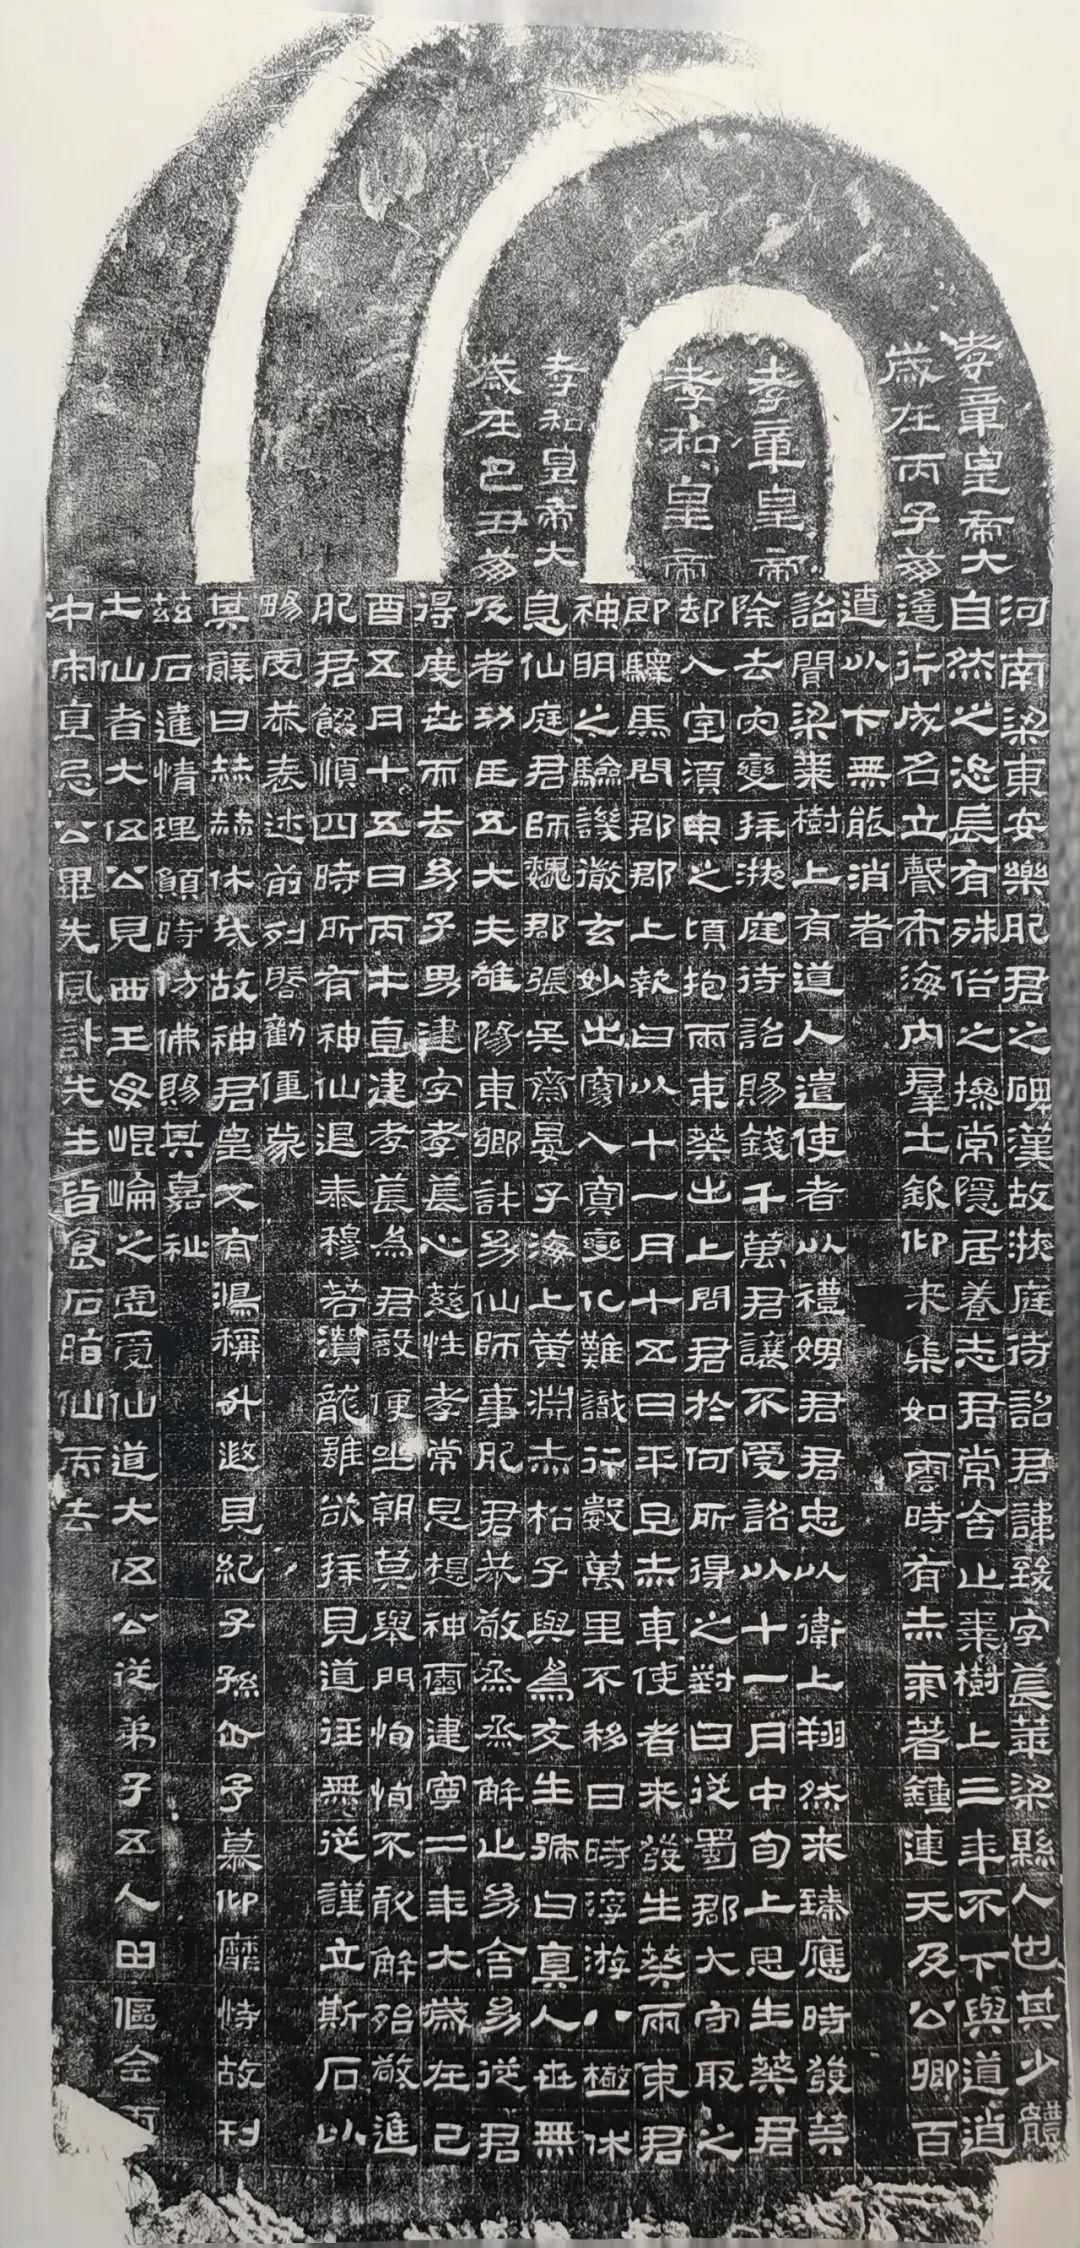 孝章皇帝大
歲在丙子崩
孝章皇帝
孝和皇帝
孝和皇帝大
歲在己丑崩
河南梁東安樂肥君之碑漢故掖庭待詔君諱致字萇華梁縣人也其少體
自然之恣長有殊俗之操常隱居養志君常舍止棗樹上三年不下與道逍
遙行成名立聲布海內羣士欽仰來集如雲時有赤氣著鐘連天及公卿百
遼以下無能消者
詔聞梁棗樹上有道人遣使者以禮娉君君忠以衛上翔然來臻應時發筭
除去灾變拜掖庭待詔賜錢千萬君讓不受詔以十一月中旬上思生葵君
却入室須臾之頃抱兩束葵出上問君於何所得之對曰從蜀郡大守取之
即驛馬問郡郡上報曰以十一月十五日平旦赤車使者來發生葵兩束君
神明之驗譏徹玄妙出窈入冥變化難識行數萬里不移日時浮游八極休
息仙庭君師魏郡張吳齋晏子海上黃淵赤松子與為友生號曰真人世無
及者功臣五大夫雒陽東鄉許幼仙師事肥君恭敬烝烝解止幼舍幼從君
得度世而去幼子男建字孝萇心慈性孝常思想神靈建寧二年大歲在己
酉五月十五日丙午直建孝萇為君設便坐朝莫舉門恂恂不敢解殆敬進
肥君餟順四時所有神仙退泰穆若潛龍雖欲拜見道徑無從謹立斯石以
暢虔恭表述前列啓勸僮蒙
其辭曰赫赫休哉故神君皇又有鴻稱升遐見紀子孫企予慕仰靡恃故刊
茲石達情理願時仿佛賜其嘉祉
土仙者大伍公見西王母崐崘之虛受仙道大伍公從弟子五人田傴全
中宋直忌公畢先風許先生皆食石脂仙而去